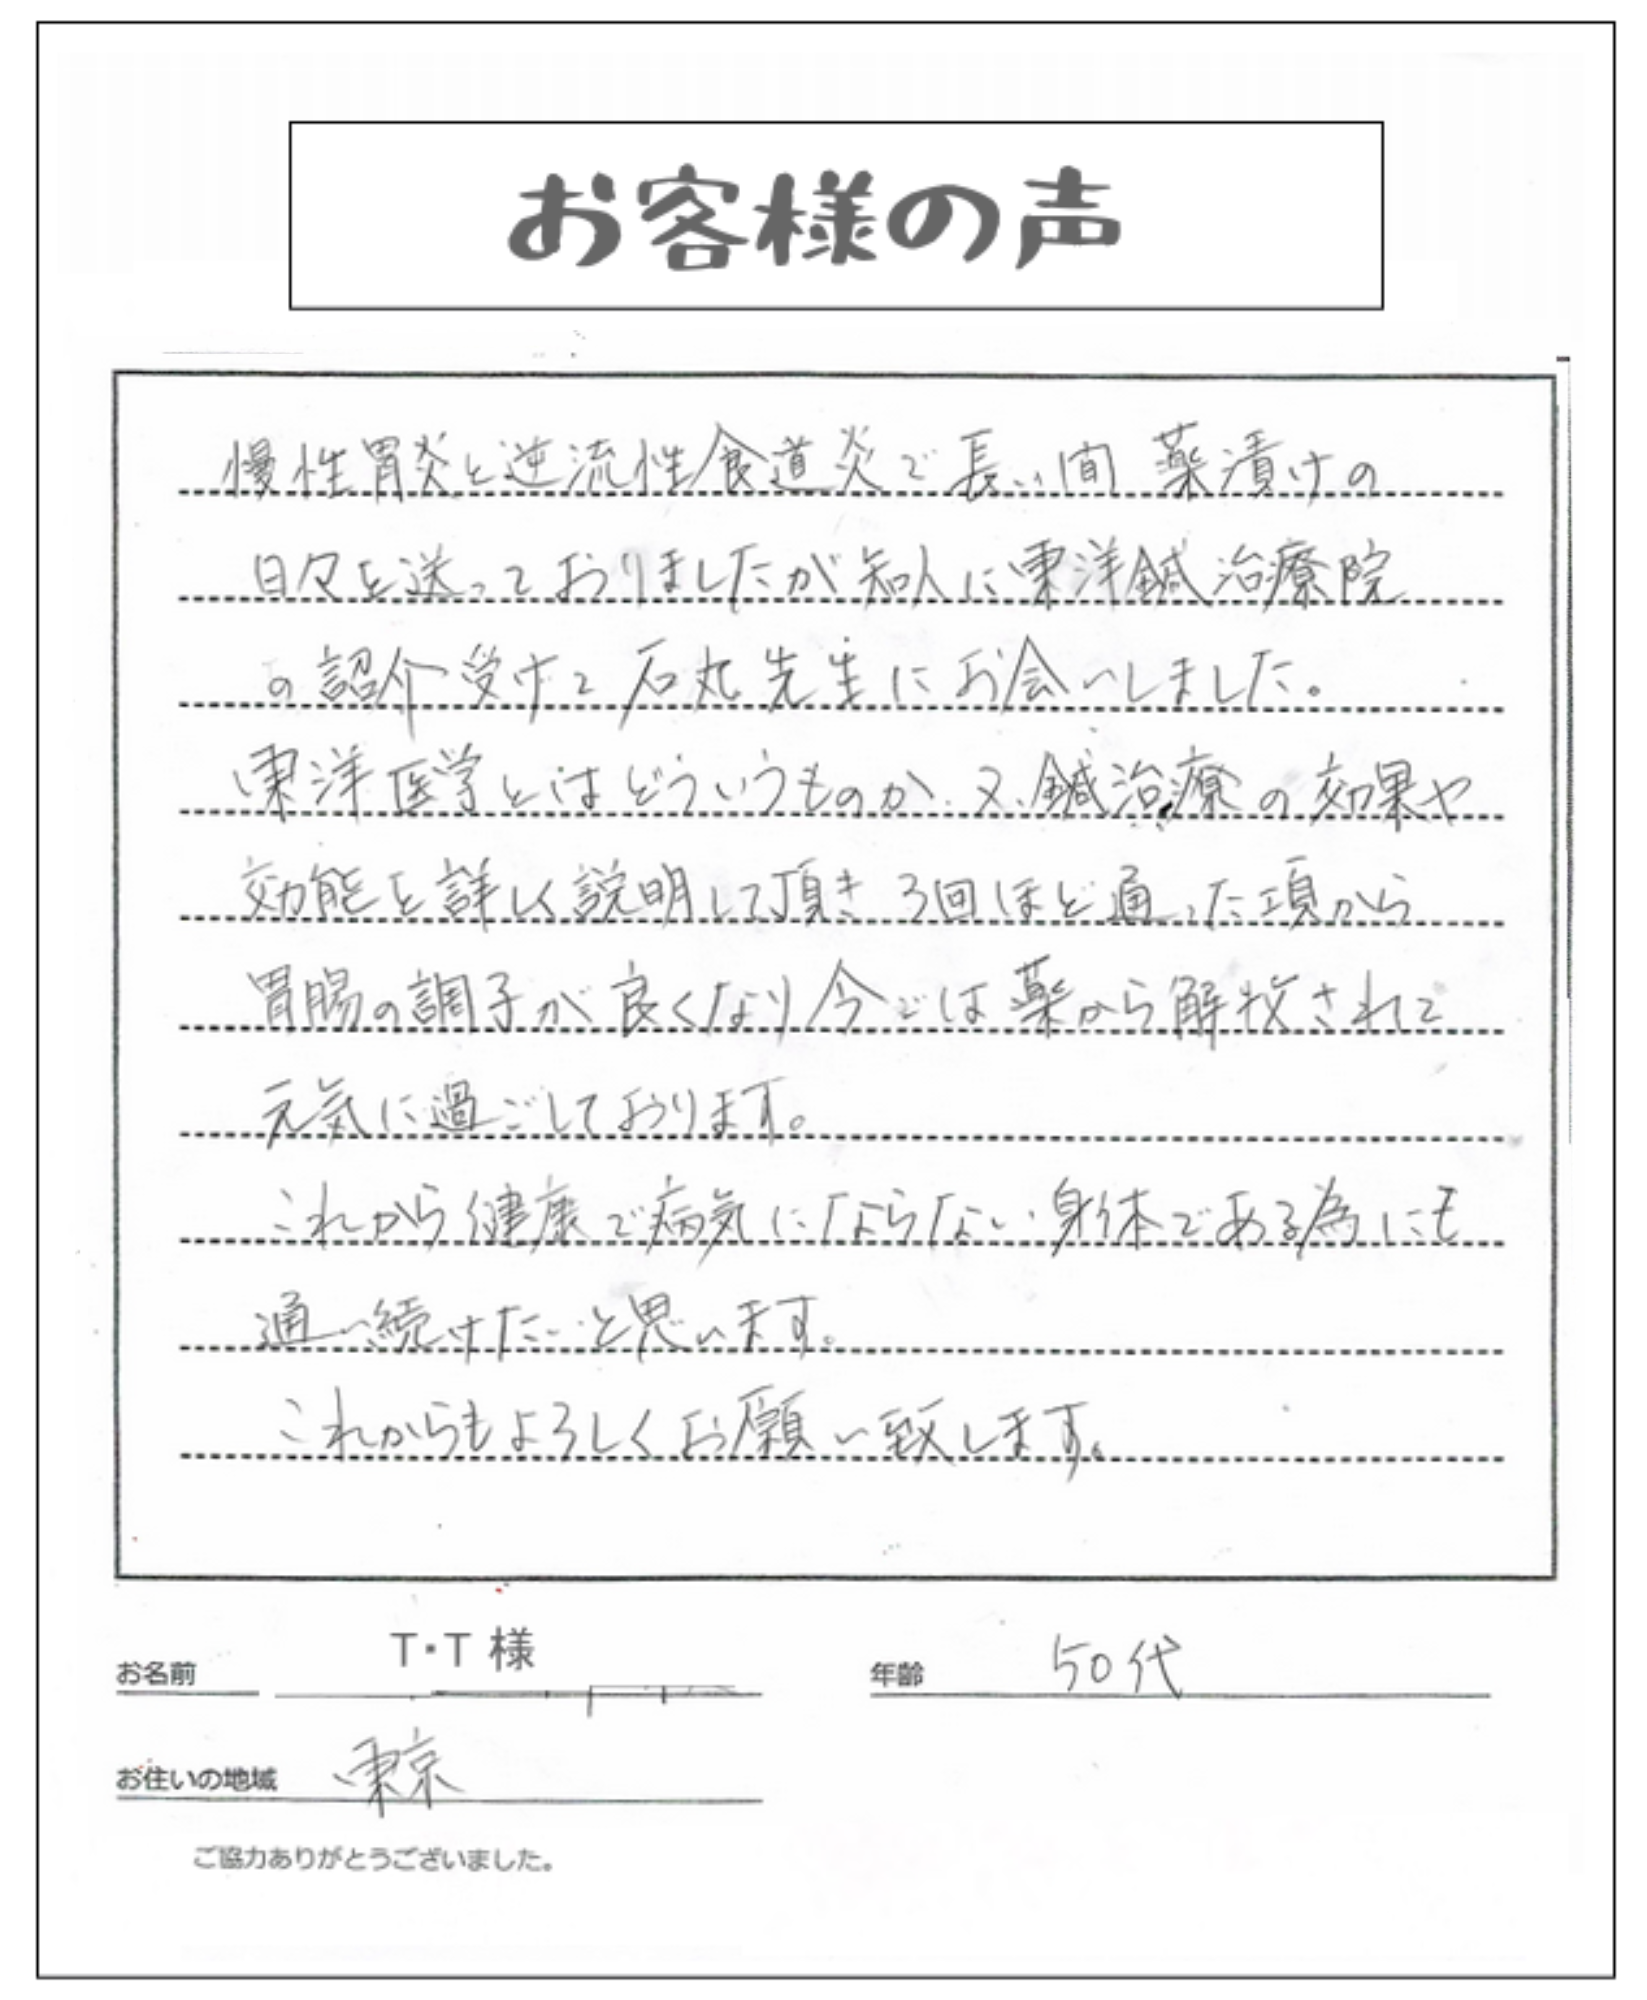 お客様の声
慢性胃炎と逆流性食道炎で長い間 薬漬けの
日々を送っておりましたが知人に東洋鍼治療院
の認介受けて石丸先生にお会いしました。
東洋医学とはどういうものか、又、鍼治療の効果や
効能を詳しく説明して頂き 3回ほど通った項から
胃腸の調子が良くなり今では薬から解放されて
元気に過ごしております。
これから健康で病気にならない身体である為にも
通い続けたいと思います。
これからもよろしくお願い致します。
お名前 T・T 様 年齢 50代
お住いの地域 東京
ご協力ありがとうございました。